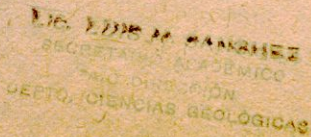 LIC. LUIS M. SANCHEZ
SECRETARIO ACADEMICO
DIRECCIÓN
DEPTO. CIENCIAS GEOLÓGICAS